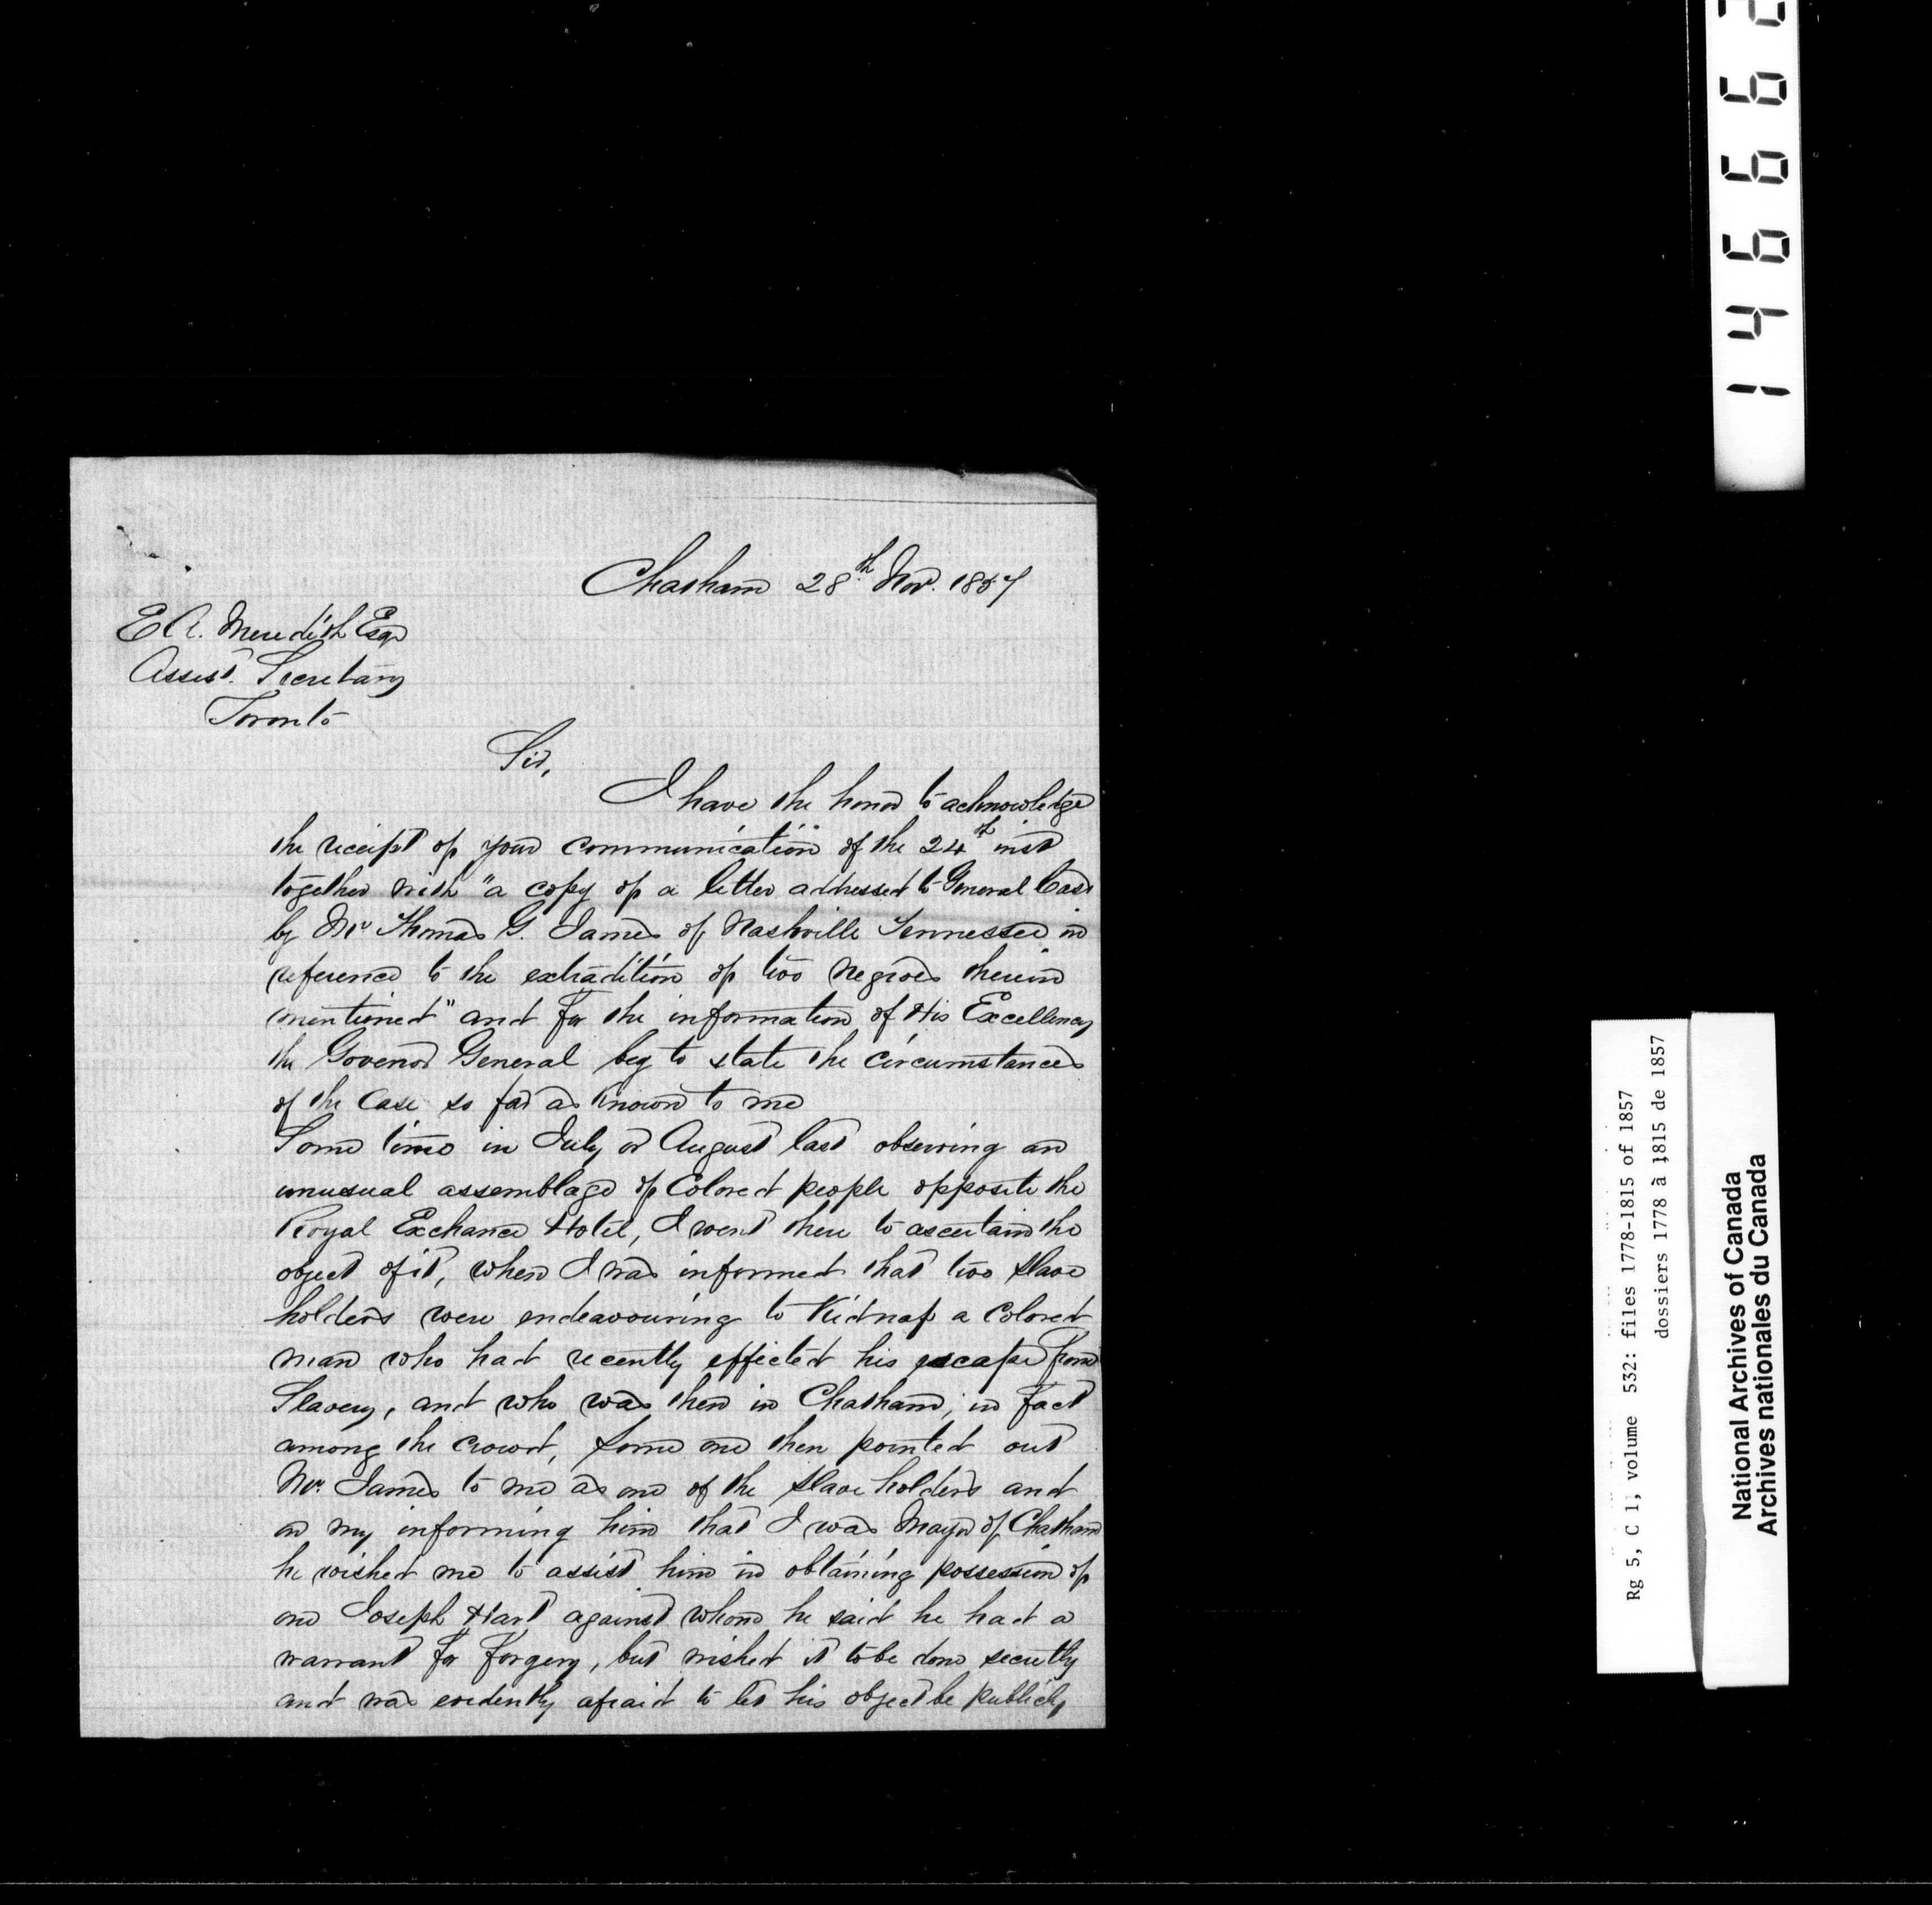 Chatham 28th Nov. 1857
E A. Meredith Esqr
Assist. Secretary
Toronto
Sir,
I have the honor to acknowledge
the receipt of your communication of the 24th inst
together with "a copy of a letter addressed to General Cass
by Mr Thomas G. James of Nashville Tennessee in
reference to the extradition of two negroes therein
mentioned" and for the information of His Excellency
the Govenor General beg to state the circumstances
of the Case so far as known to me
Some time in July or August last observing an
unusual assemblage of Colored people opposite the
Royal Exchance Hotel, I went there to ascertain the
object of it, when I was informed that two slave
holders were endeavouring to Kidnap a Colored
man who had recently effected his escape from
Slavery, and who was then in Chatham, in fact
among the crowd, some one then pointed out
Mr. James to me as one of the slave holders and
on my informing him that I was Mayor of Chatham
he wished me to assist him in obtaining possession of
one Joseph Hart against whom he said he had a
warrant for forgery, but wished it to be done secretly
and was evidently afraid to let his object be publicly
14666
Rg 5, C 1, volume 532: files 1778-1815 of 1857
dossiers 1778 à 1815 de 1857
National Archives of Canada
Archives nationales du Canada